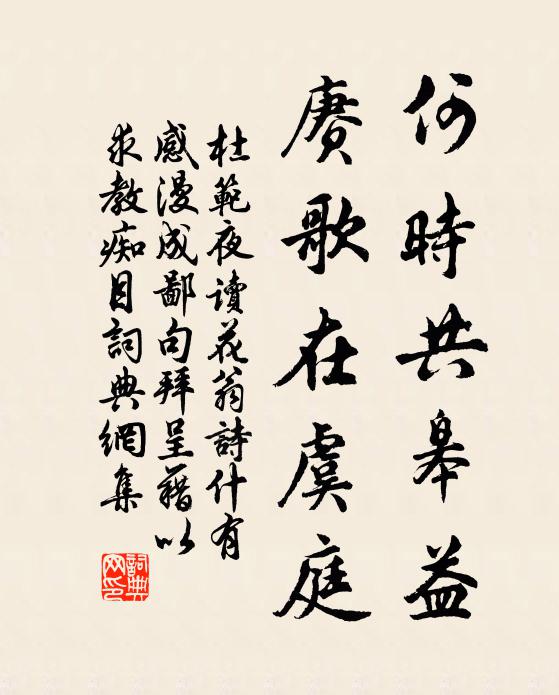 何時共皋益
賡歌在虞庭
杜範夜讀花翁詩什有
感漫成鄙句拜呈藉以
求教痴目詞典網集
詞典
网印